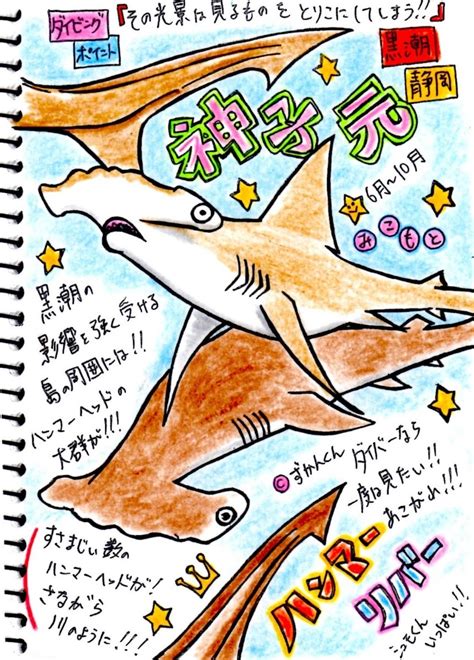 ダイビング
ポイント
『その光景は見るものを とりこにしてしまう!!』
黒潮
静岡
神子元
6月〜10月
みこもと
黒潮の
影響を強く受ける
島の周囲には!!
ハンマーヘッドの
大群が!!!
©ずかんくん
ダイバーなら
一度は見たい!!
あこがれ!!
ハンマー
リバー
すさまじい数の
ハンマーヘッドが!
さながら
川のように!!!
いっぱい!!